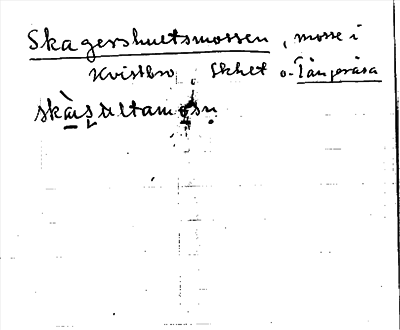 Skagershultsmossen, mosse i
Kvistbro Skhet o. Tångeråsa
skàɪsɐltamosn